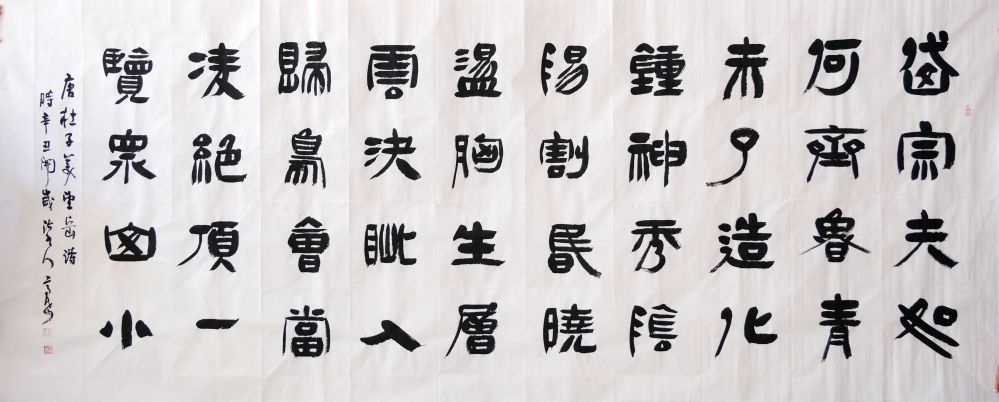 岱宗夫如
何齊魯青
未了造化
鍾神秀陰
陽割昬曉
盪胸生層
雲決眦入
歸鳥會當
凌絕頂一
覽眾山小
唐杜子美望岳詩
時辛丑開歲